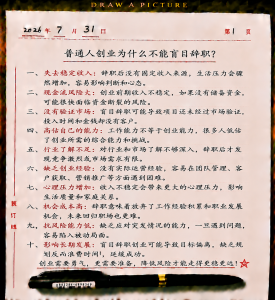 DRAW A PICTURE
2026年7月31日 第1页
普通人创业为什么不能盲目辞职?
一、失去稳定收入:辞职后没有固定收入来源,生活压力会骤
然增加,容易影响判断和心态。
二、现金流风险大:创业前期收入不稳定,如果没有储备资金,
可能很快面临资金断裂的风险。
三、没有验证市场:盲目辞职可能导致项目还未经过市场验证,
投入时间和金钱却没有客户。
四、高估自己的能力:工作能力不等于创业能力,很多人低估
了创业所需的综合能力和挑战。
五、行业了解不足:对行业和市场了解不够深入,辞职后才发
现竞争激烈或市场需求有限。
六、缺乏创业经验:没有实际运营经验,容易在团队管理、客
户获取、营销推广等方面遇到困难。
七、心理压力增加:收入不稳定会带来更大的心理压力,影响
生活质量和家庭关系。
八、机会成本高:辞职意味着放弃了工作经验积累和职业发展
机会,未来回归职场也更难。
九、抗风险能力低:缺乏应对突发情况的能力,一旦遇到问题,
容易陷入被动局面。
十、影响长期发展:盲目辞职创业可能导致目标偏离,缺乏规
划反而浪费时间,延缓成功。
创业需要勇气,更需要准备,降低风险才能走得更稳更远!
装订线